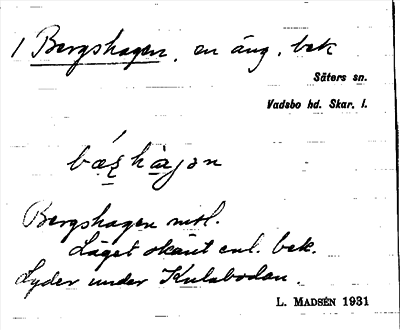 1 Bergshagen, en äng, bek
Säters sn.
Vadsbo hd. Skar. l.
Bergshagen nvol.
Läget okänt enl. bek.
Lyder under Kulabodan.
L. MADSÉN 1931